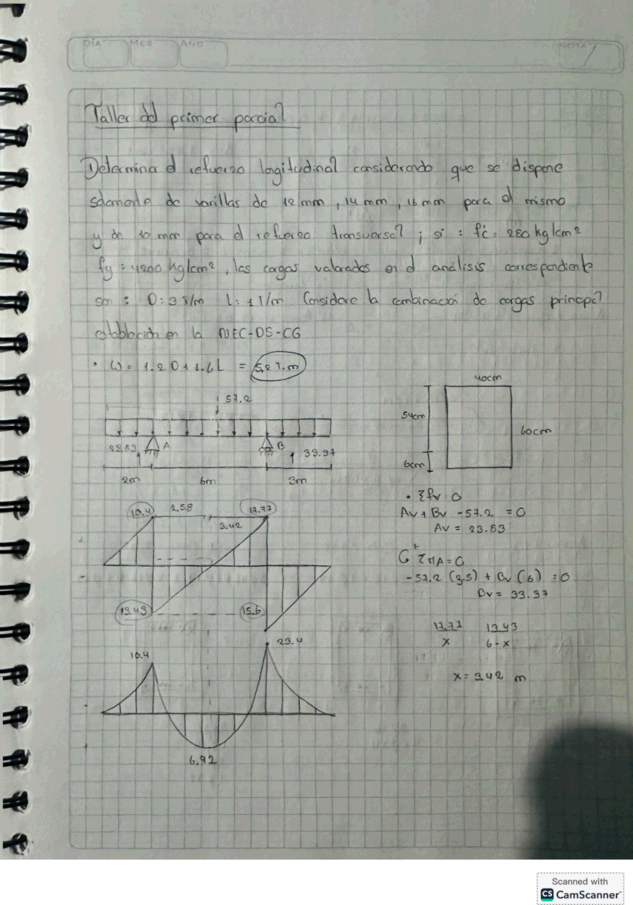 DIA MES AÑO NOTA
Taller del primer parcial
Determina el refuerzo longitudinal considerando que se dispone
solamente de varillas de 12 mm, 14 mm, 16 mm para el mismo
y de 10 mm para el refuerzo transversal ; si : f'c = 280 kg/cm²
fy = 4200 kg/cm², las cargas valoradas en el análisis correspondiente
son : D = 3 T/m L = 1 T/m Considere la combinación de cargas principal
establecida en la NEC-DS-CG
• W = 1.2 D + 1.6 L = 5.2 T.m
40cm
57.2
54cm
60cm
23.83 A B 33.37
6cm
2m 6m 3m
• ΣFv = 0
10.4 2.58 17.77
Av + Bv - 57.2 = 0
3.42
Av = 23.83
ΣMA = 0
-57.2 (3.5) + Bv (6) = 0
Bv = 33.37
13.43 15.6
17.77 13.43
x 6-x
23.4
10.4
x = 3.42 m
6.92
Scanned with
CS CamScanner